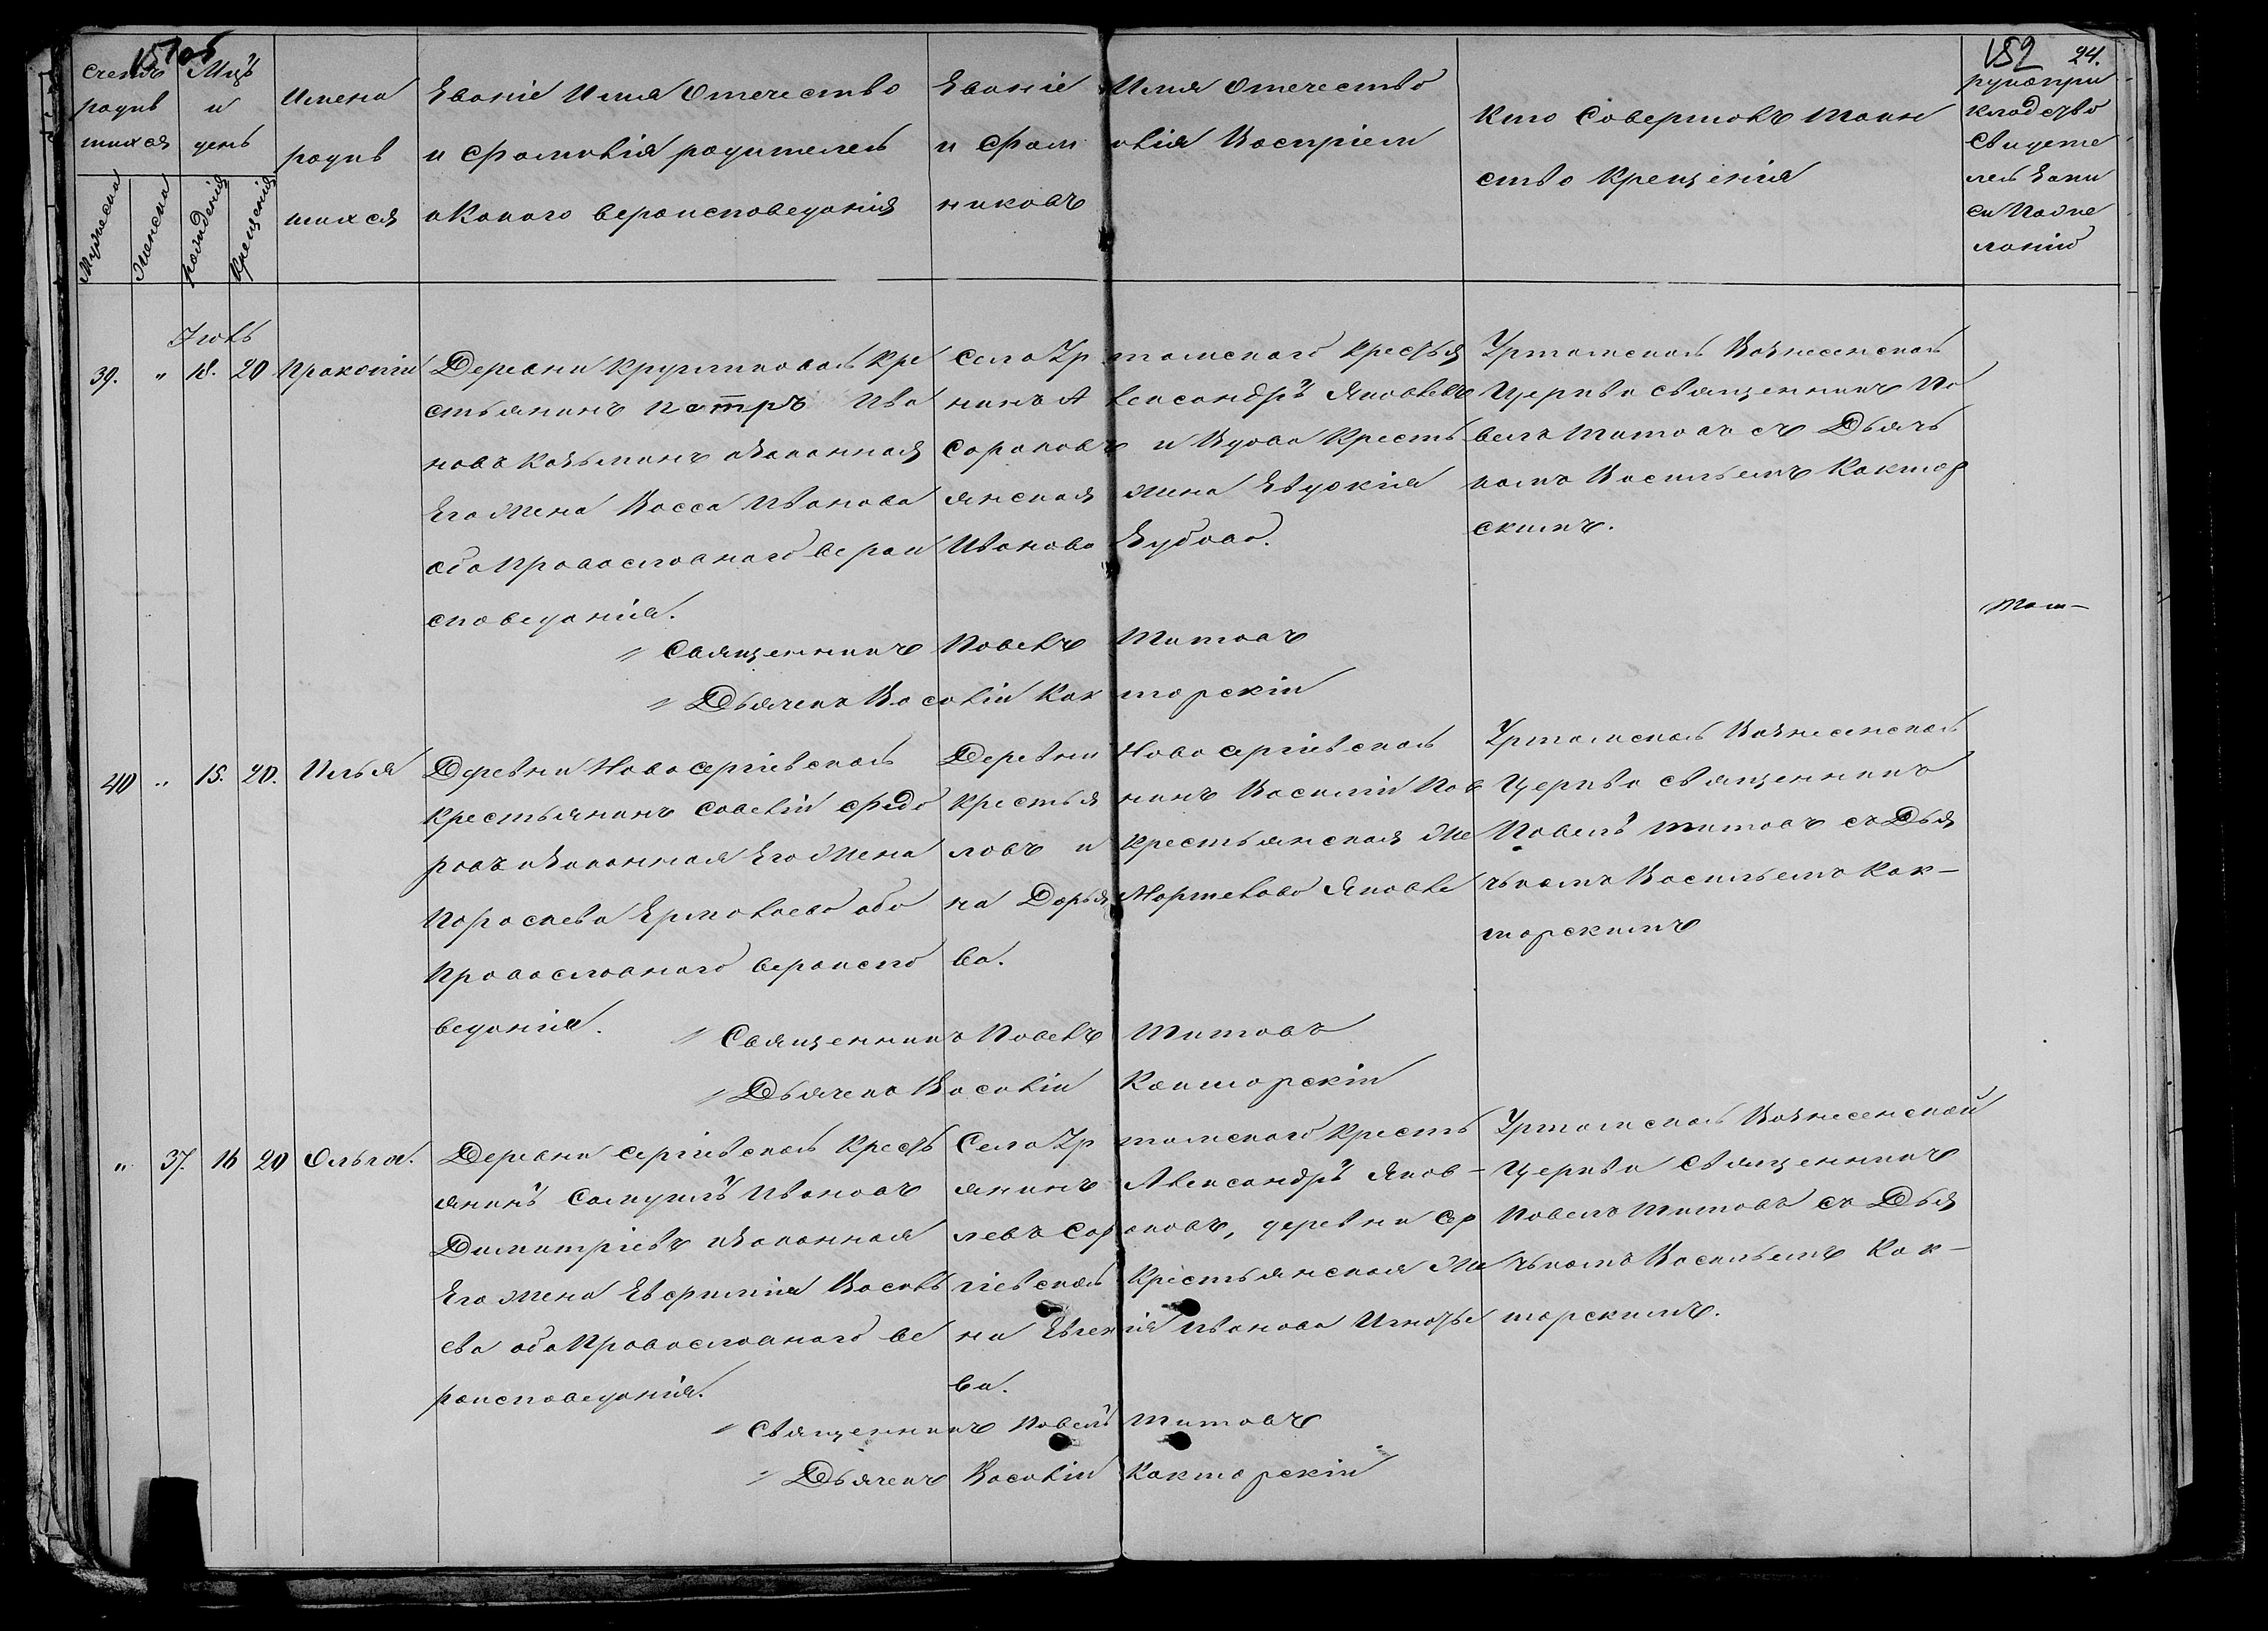 152 24.
Счетъ
родив
шихся
Мужеска
Женска
Мцъ
и
день
рождения
Крещенія
Имена
родив
шихся
Званіе Имя Отечество
и Фамилія родителей
и Какого вероисповеданія
Званіе Имя Отечество
и Фамилія Воспріем
никовъ
Кто Совершалъ Таин
ство Крещенія
рукопри
кладство
Свидете
лей Запи
си По же
ланію
Іюль
39. " 18. 20 Прокопій
Деревни Кругликовой Кре
стьянинъ Петръ Ива
новъ Козьминъ и Законная
Его Жена Васса Иванова
оба Православнаго верои
споведания.
Села Уртамского Крестья
нинъ Александръ Яковлевъ
Сороковъ и Вдова Кресть
янская жена Евдокия
Иванова Зубова.
Уртамской Вознесенской
Церкви священникъ Па
велъ Титовъ съ Дьячь
комъ Васильемъ Коктор
скимъ.
" Священникъ Павелъ Титовъ
" Дьячекъ Василій Кокторскій
40 " 15. 20. Илья
Деревни Новосергіевской
Крестьянинъ Савелій Федо
ровъ и Законная Его Жена
Пораскева Ермолаева оба
Православнаго вероиспо
ведания.
Деревни Новосергіевской
Крестьянинъ Василій Пав
ловъ и Крестьянская Же
на Дарья Яковле
ва.
Уртамской Вознесенской
Церкви священникъ
Павелъ Титовъ съ Дья
чькомъ Васильемъ Кок-
торскимъ
" Священникъ Павелъ Титовъ
" Дьячекъ Василій Кокторскій
" 37. 16 20 Ольга.
Деревни Сергіевской Кресть
янинъ Самуилъ Ивановъ
Димитріевъ и Законная
Его Жена Евфимия Василь
ева оба Православнаго ве
роисповедания.
Села Уртамского Кресть
янинъ Александръ Яков-
левъ Сороковъ, деревни Сер
гіевской Крестьянская Же
на Евгения Иванова Игнатье
ва.
Уртамской Вознесенской
Церкви Священникъ
Павелъ Титовъ съ Дья
чькомъ Васильемъ Кок-
торскимъ.
" Священникъ Павелъ Титовъ
" Дьячекъ Василій Кокторскій